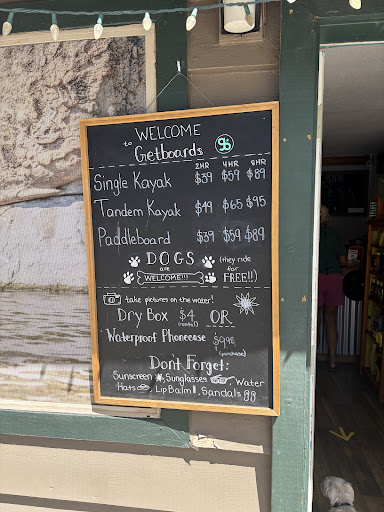 WELCOME
to Getboards gb
2HR 4HR 8HR
Single Kayak $39 $59 $89
Tandem Kayak $49 $65 $95
Paddleboard $39 $59 $89
DOGS
are
WELCOME!!!
(they ride
for
FREE!!)
take pictures on the water!
Dry Box $4 OR
(rental)
Waterproof Phonecase
(purchase)
Dont Forget:
Sunscreen Sunglasses Water
Hats, Lip Balm, Sandals